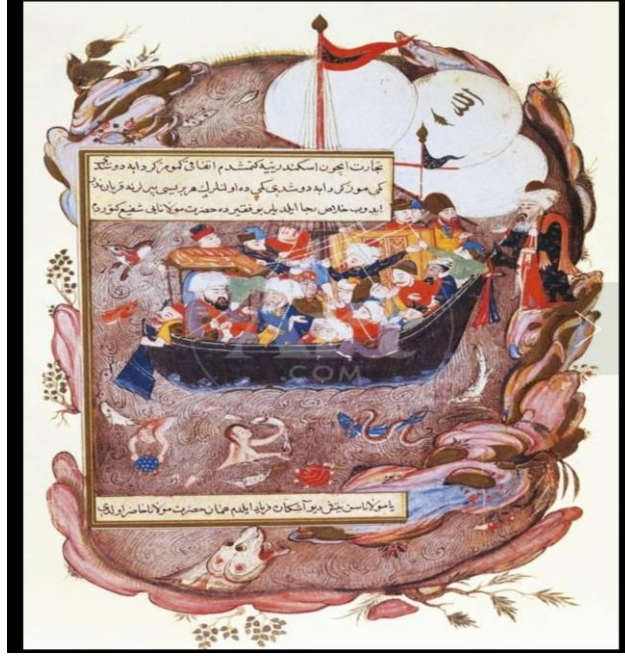 الله
تجارت ایچون اسكندریه یه كتمشدم اتفاقی كمومز كردابه دوشدی
كمی موز كردابه دوشدی كمی ده اولنلرك هر بریسی بیرلرنه قربان نذر
ایدوب خلاص رجا ایلدیلر بو فقیر ده حضرت مولانایی شفیع كتوردم
.COM
یا مولانا سن یتش دیو آشكان فریاد ایلدم همان حضرت مولانا حاضر اولدی